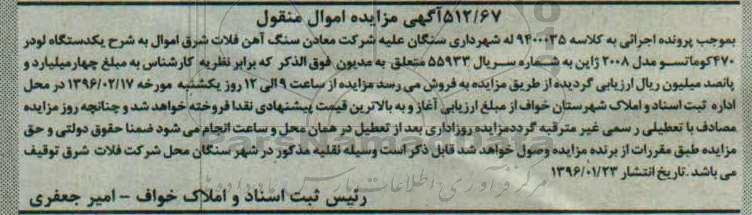 ۵۱۲/۶۷آگهی مزایده اموال منقول
بموجب پرونده اجرائی به کلاسه ۹۴۰۰۰۳۵ له شهرداری سنگان علیه شرکت معادن سنگ آهن فلات شرق اموال به شرح یکدستگاه لودر
۴۷۰کوماتسو مدل ۲۰۰۸ ژاپن به شماره سریال ۵۵۹۳۳ متعلق به مدیون فوق الذکر که برابر نظریه کارشناس به مبلغ چهارمیلیارد و
پانصد میلیون ریال ارزیابی گردیده از طریق مزایده به فروش می رسد مزایده از ساعت ۹ الی ۱۲ روز یکشنبه مورخه ۱۳۹۶/۰۲/۱۷ در محل
اداره ثبت اسناد و املاک شهرستان خواف از مبلغ ارزیابی آغاز و به بالاترین قیمت پیشنهادی نقدا فروخته خواهد شد و چنانچه روز مزایده
مصادف با تعطیلی رسمی غیر مترقبه گرددمزایده روزاداری بعد از تعطیل در همان محل و ساعت انجام می شود ضمنا حقوق دولتی و حق
مزایده طبق مقررات از برنده مزایده وصول خواهد شد قابل ذکر است وسیله نقلیه مذکور در شهر سنگان محل شرکت فلات شرق توقیف
می باشد .تاریخ انتشار ۱۳۹۶/۰۱/۲۳
رئیس ثبت اسناد و املاک خواف - امیر جعفری